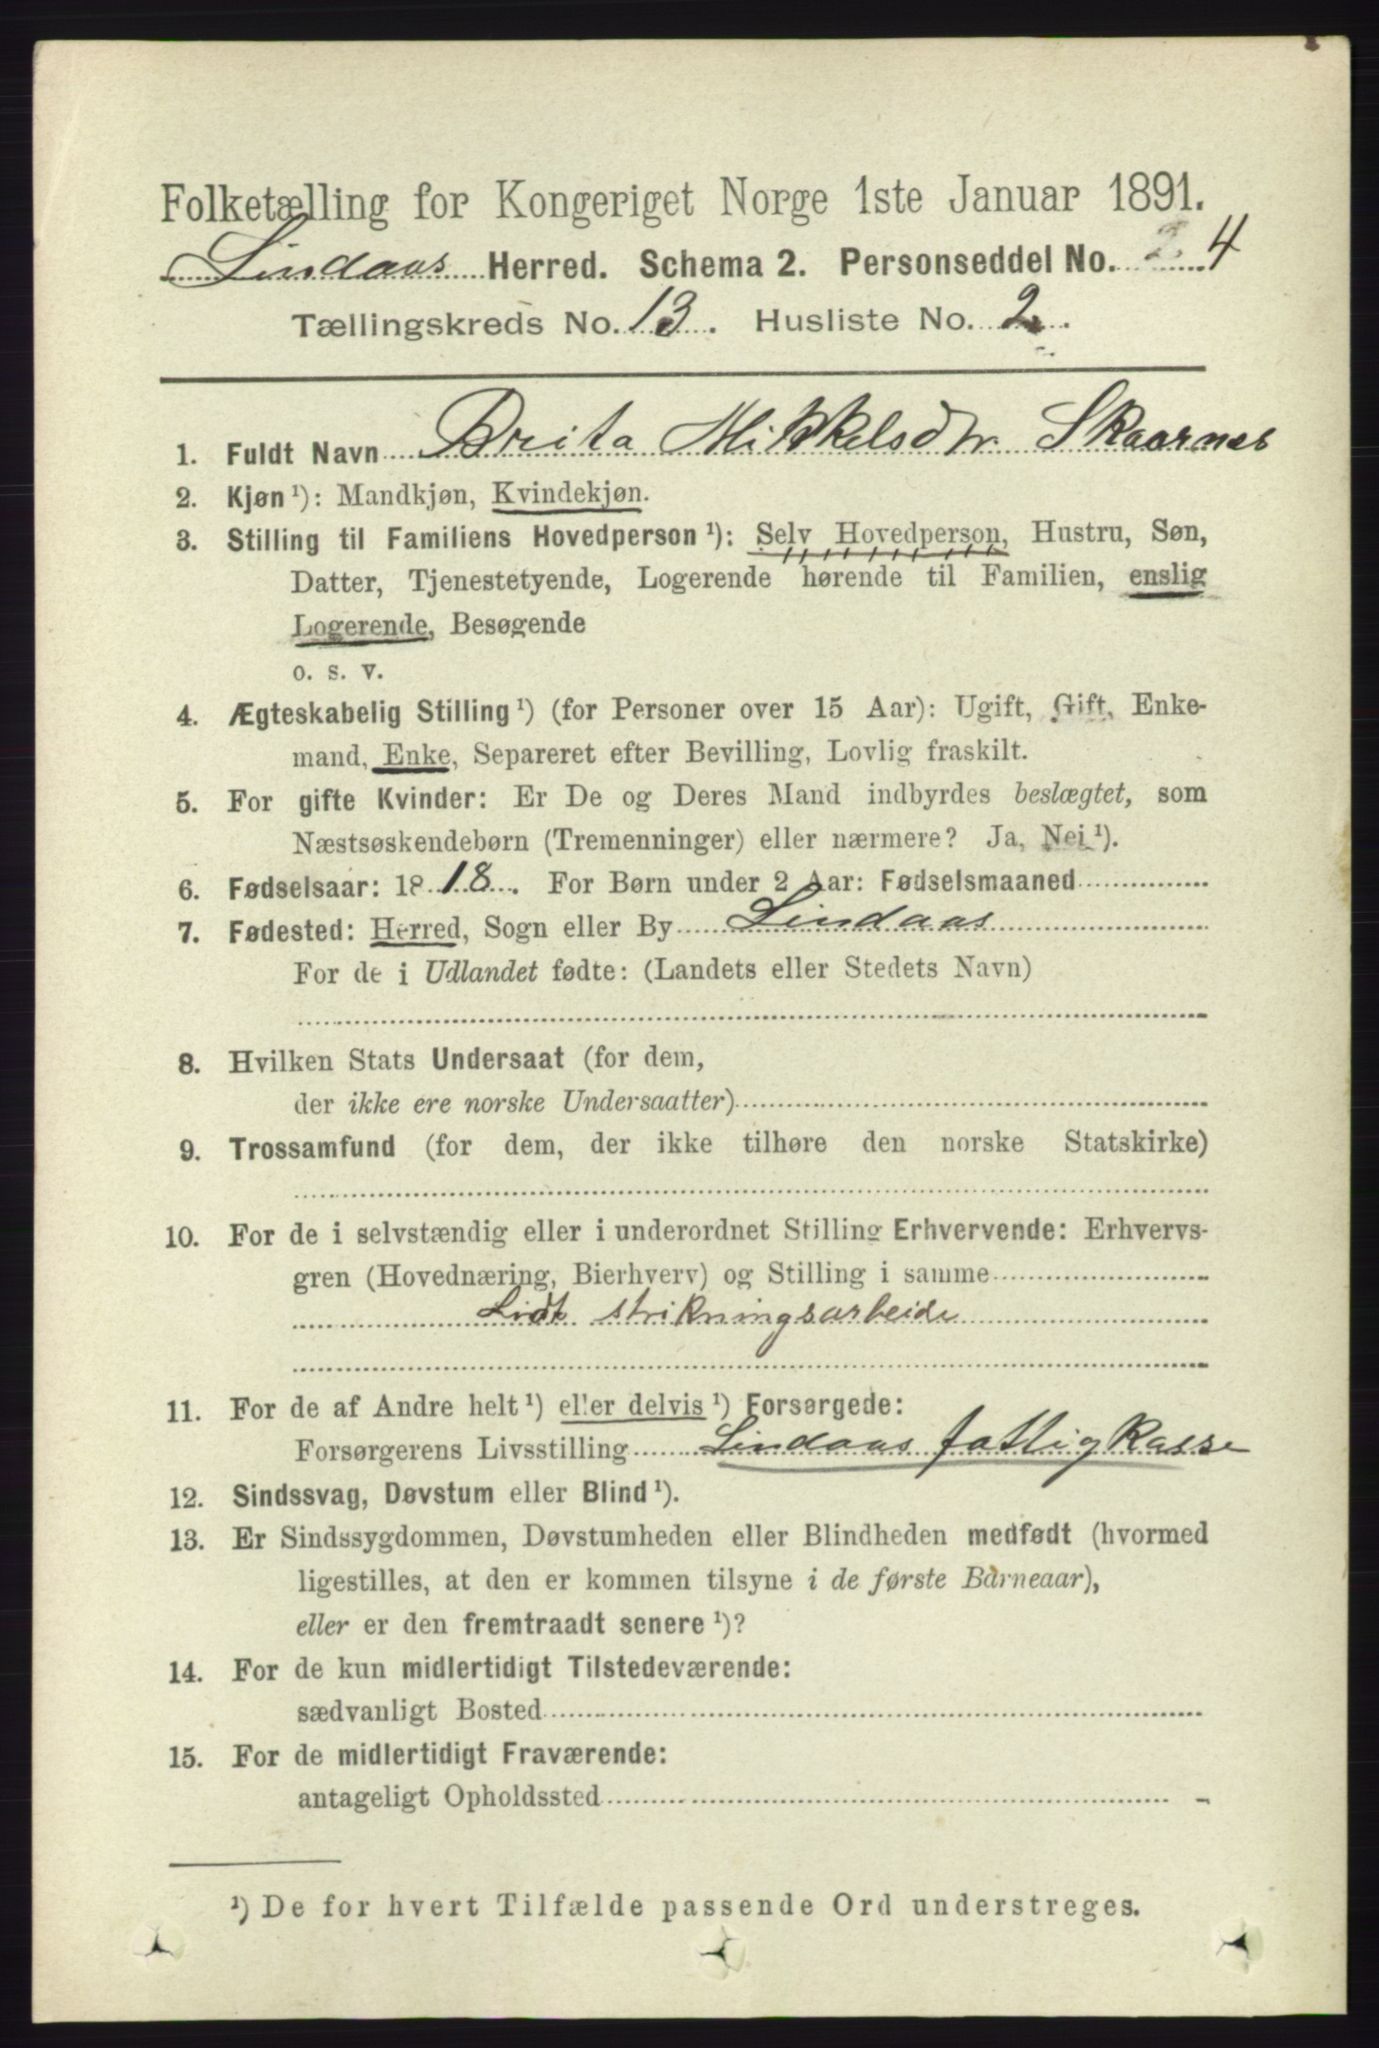 Folketælling for Kongeriget Norge 1ste Januar 1891.
Lindaas Herred. Schema 2. Personseddel No. 4
Tællingskreds No. 13. Husliste No. 2.
1. Fuldt Navn Brita Mikkelsdtr. Skaarnes
2. Kjøn ¹): Mandkjøn, Kvindekjøn.
3. Stilling til Familiens Hovedperson ¹): Selv Hovedperson, Hustru, Søn,
Datter, Tjenestetyende, Logerende hørende til Familien, enslig
Logerende, Besøgende
o. s. v.
4. Ægteskabelig Stilling ¹) (for Personer over 15 Aar): Ugift, Gift, Enke-
mand, Enke, Separeret efter Bevilling, Lovlig fraskilt.
5. For gifte Kvinder: Er De og Deres Mand indbyrdes beslægtet, som
Næstsøskendebørn (Tremenninger) eller nærmere? Ja, Nei ¹).
6. Fødselsaar: 1818. For Børn under 2 Aar: Fødselsmaaned
7. Fødested: Herred, Sogn eller By Lindaas
For de i Udlandet fødte: (Landets eller Stedets Navn)
8. Hvilken Stats Undersaat (for dem,
der ikke ere norske Undersaatter)
9. Trossamfund (for dem, der ikke tilhøre den norske Statskirke)
10. For de i selvstændig eller i underordnet Stilling Erhvervende: Erhvervs-
gren (Hovednæring, Bierhverv) og Stilling i samme
Lidt strikningsarbeide
11. For de af Andre helt ¹) eller delvis ¹) Forsørgede:
Forsørgerens Livsstilling Lindaas fattigkasse
12. Sindssvag, Døvstum eller Blind ¹).
13. Er Sindssygdommen, Døvstumheden eller Blindheden medfødt (hvormed
ligestilles, at den er kommen tilsyne i de første Barneaar),
eller er den fremtraadt senere ¹)?
14. For de kun midlertidigt Tilstedeværende:
sædvanligt Bosted
15. For de midlertidigt Fraværende:
antageligt Opholdssted
¹) De for hvert Tilfælde passende Ord understreges.